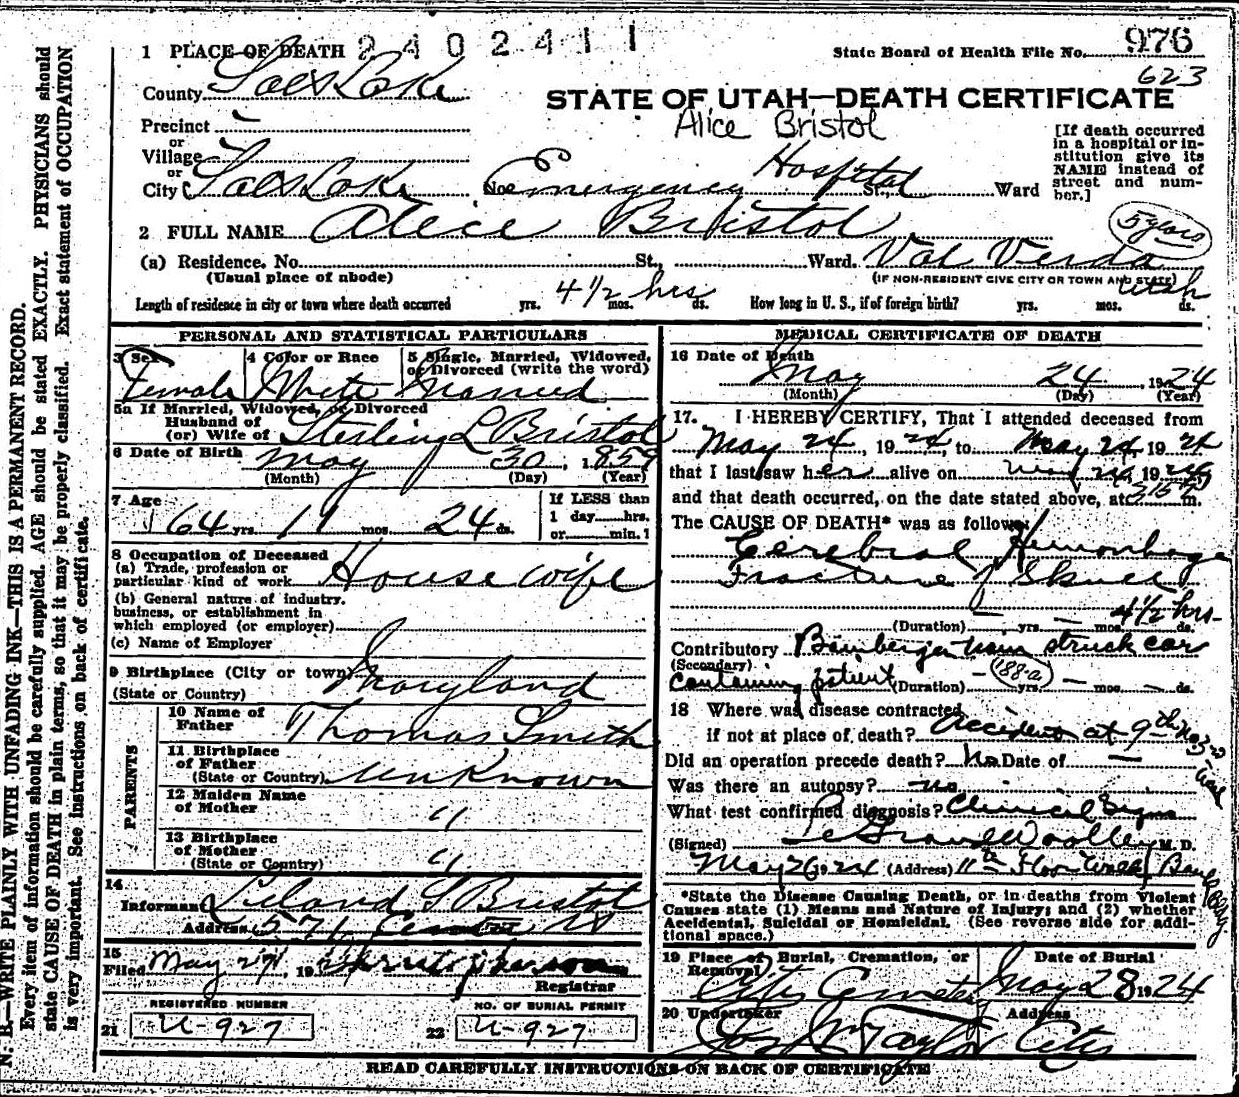 1 PLACE OF DEATH 2402411
State Board of Health File No. 976
623
County Salt Lake
STATE OF UTAH—DEATH CERTIFICATE
Alice Bristol
Precinct
or
Village
or
City Salt Lake No. Emergency Hospital St., Ward
[If death occurred
in a hospital or in-
stitution give its
NAME instead of
street and num-
ber.]
2 FULL NAME Alice Bristol
5 years
(a) Residence. No. St., Ward. Val Verda
Utah
(Usual place of abode)
(IF NON-RESIDENT GIVE CITY OR TOWN AND STATE)
Length of residence in city or town where death occurred yrs. 4 1/2 hrs mos. ds. How long in U. S., if of foreign birth? yrs. mos. ds.
PERSONAL AND STATISTICAL PARTICULARS
3 Sex
Female
4 Color or Race
White
5 Single, Married, Widowed,
or Divorced (write the word)
Married
5a If Married, Widowed, or Divorced
Husband of
(or) Wife of Sterling L Bristol
6 Date of Birth May 30, 1859
(Month) (Day) (Year)
7 Age
64 yrs. 11 mos. 24 ds.
If LESS than
1 day hrs.
or min.
8 Occupation of Deceased
(a) Trade, profession or
particular kind of work House wife
(b) General nature of industry,
business, or establishment in
which employed (or employer)
(c) Name of Employer
9 Birthplace (City or town)
(State or Country) Maryland
PARENTS
10 Name of
Father Thomas Smith
11 Birthplace
of Father
(State or Country) Unknown
12 Maiden Name
of Mother "
13 Birthplace
of Mother
(State or Country) "
14
Informant Leland S Bristol
Address 571 Center
15
Filed May 27, 19
Registrar
REGISTERED NUMBER
21 U-927
NO. OF BURIAL PERMIT
22 U-927
MEDICAL CERTIFICATE OF DEATH
16 Date of Death
May 24, 1924
(Month) (Day) (Year)
17. I HEREBY CERTIFY, That I attended deceased from
May 24, 1924, to May 24 1924
that I last saw her alive on May 24, 1924
and that death occurred, on the date stated above, at 3:15 P m.
The CAUSE OF DEATH* was as follows:
Cerebral Hemorrhage
Fracture of Skull
4 1/2 hrs-
(Duration) — yrs. — mos. ds.
Contributory Bamberger train struck car
(Secondary)
containing patient (Duration) — yrs. — mos. — ds.
(188-a)
18 Where was disease contracted
if not at place of death? Accident at 9th No 3rd West
Did an operation precede death? No Date of —
Was there an autopsy? no
What test confirmed diagnosis? Clinical Signs
(Signed) Le Grand Woolley M. D.
May 26 1924 (Address) 11th Floor Walker Bank Bldg
*State the Disease Causing Death, or in deaths from Violent
Causes state (1) Means and Nature of Injury; and (2) whether
Accidental, Suicidal or Homicidal. (See reverse side for addi-
tional space.)
19 Place of Burial, Cremation, or
Removal
City Cemetery
Date of Burial
May 28 1924
20 Undertaker
Jos Wm Taylor
Address
City
READ CAREFULLY INSTRUCTIONS ON BACK OF CERTIFICATE
N. B.—WRITE PLAINLY WITH UNFADING INK—THIS IS A PERMANENT RECORD.
Every item of information should be carefully supplied. AGE should be stated EXACTLY. PHYSICIANS should
state CAUSE OF DEATH in plain terms, so that it may be properly classified. Exact statement of OCCUPATION
is very important. See instructions on back of certificate.